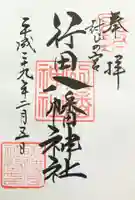 奉拝
封じの宮
行田八幡神社
平成二十九年二月五日